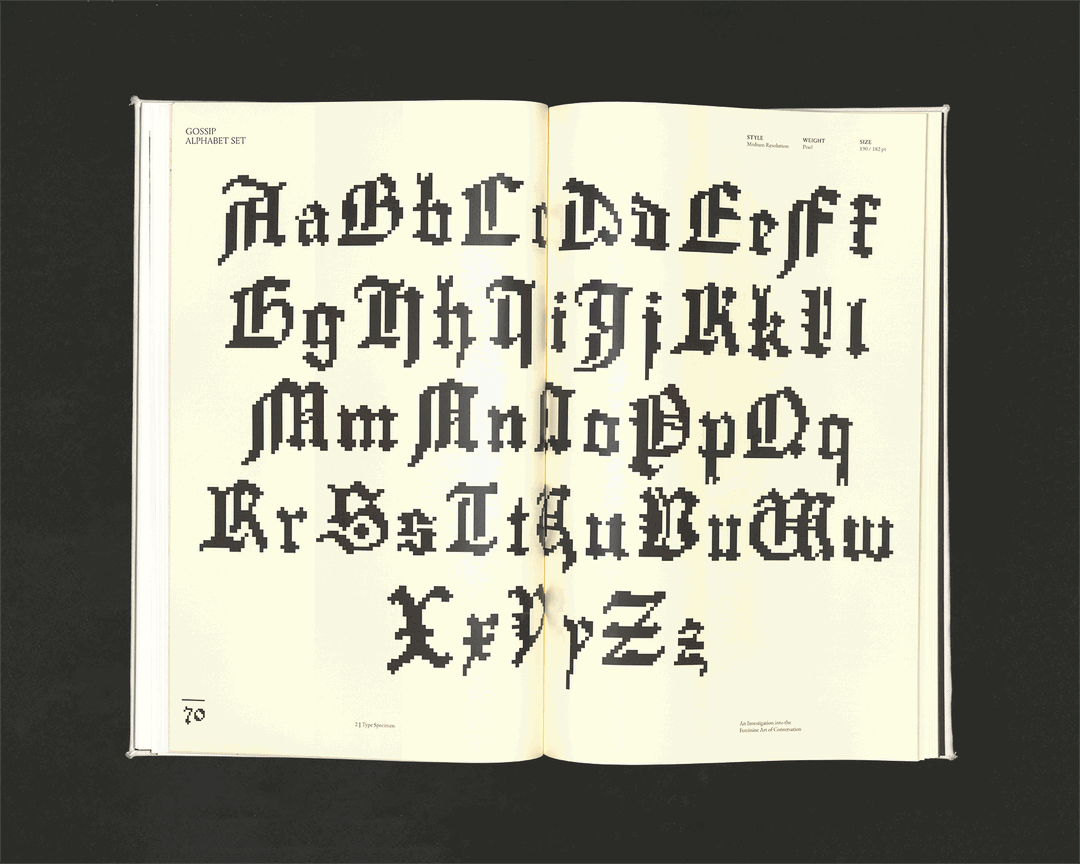 GOSSIP
ALPHABET SET
STYLE
Medium Resolution
WEIGHT
Pixel
SIZE
190 / 182 pt
AaBbCcDdEeFf
GgHhIiJjKkLl
MmNnOoPpQq
RrSsTtUuVvWw
XxYyZz
70
2 | Type Specimen
An Investigation into the
Feminine Art of Conversation